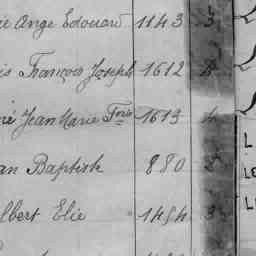 ie Ange Edouard 1143 5
is François Joseph 1612 4
né Jean Marie Fois 1613 4
an Baptiste 880
lbert Elie 1454 3